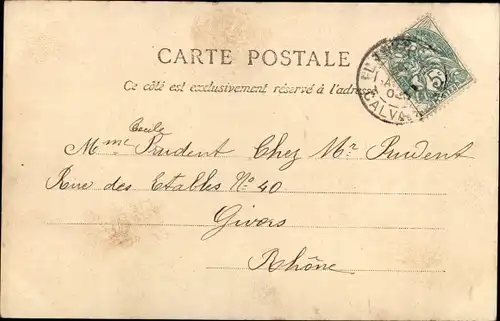 CARTE POSTALE
Ce côté est exclusivement réservé à l'adresse
CALVA
5
Cecile
Mme Prudent Chez Mr Prudent
Rue des Etables No 40
Givors
Rhône